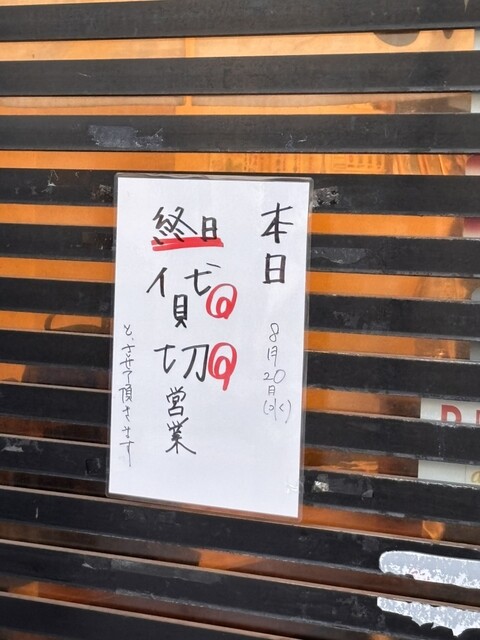 本日 8月20日(水)
終日
貸切営業
と、させて頂きます